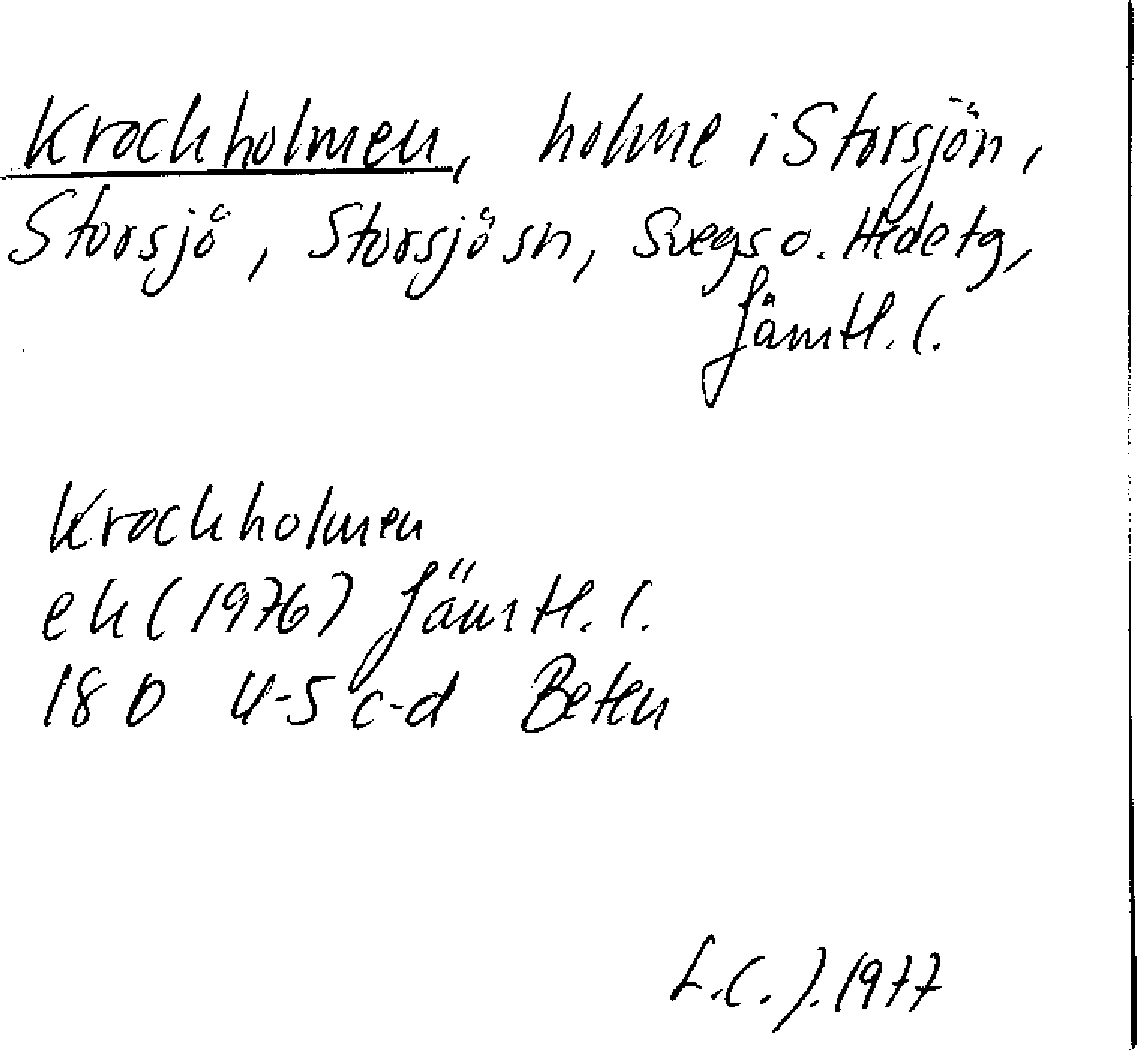 Krockholmen, holme i Storsjön,
Storsjö, Storsjö sn, Svegs o. Hede tg,
Jämtl. l.
Krockholmen
ek (1976) Jämtl. l.
18 D 4-5 c-d Beten
L.C.J. 1977